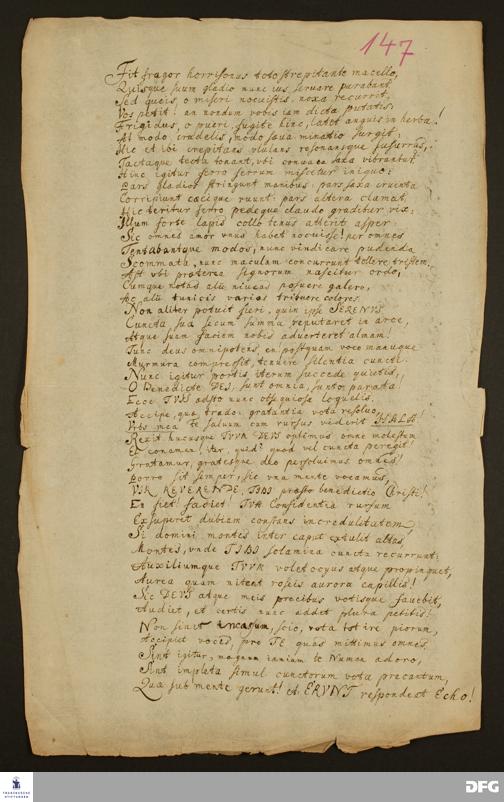 147
Fit fragor horrisonus toto strepitante macello,
Quisque suum gladio nunc ius servare parabant
Sed queis, o miseri nocuistis. noxa recurret.
Vos petit! an nondum vobis iam dicta putatis,
Frigidus, o pueri, fugite hinc, latet anguis in herba!
At modo crudelis, modo saeva minatio surgit,
Hic et ibi crepitans ululans resonansque susurrus,
Tactaque tecta tonant, ubi saxa vibrantur
Hinc igitur ferro ferrum nascetur iniquo:
Pars gladios stringunt manibus: pars saxa cruenta
Corripiunt caecique ruunt: pars altera clamat,
Hic teritur ferro pedeque claudo gradibur vix:
Illum forte lapis collo tenus atterit asper.
Sic omnes amor unus habet nocuisse! per omnes
Tentabantque modos, nunc vindicare pudenda
Scommata, nunc maculam concurrunt tollere tristem.
Ast ubi proterea signorum nascitur ordo,
Cumque notas alii niveas posuere galero,
Ac alii tunicis varios tribuere colores.
Non aliter potuit fieri, quin ipse SERENUS
Cuncta, sua secum summa reputaret in arce,
Atque suam faciem nobis adverteret almam!
Tunc deus omnipotens, en postquam voce manuque
Murmura compressit, tenuere silentia cuncti.
Nunc igitur portis iterum succede quietis,
O benedicte DEI, sunt omnia, sunto parata
Ecce TUIS adsto nunc obsequiose loquelis.
Accipe, quae trado: gratantia vota resolvo,
Urbs mea te salvum cum rursus viderit HALA!
Rexit hucusque TUUM DEUS optimus omne molestum
Et conamen, iter, quid? quod vel cuncta peregit!
Gratamur, gratesque deo persolvimus omnes!
Porro sit semper, sic una mente vocamus,
VIR REVERENDE, TIBI praesto benedictio Christi!
En fiet! faciet! TUA Confidentia rursum
Exsuperet dubiam constans incredulitatem,
Si domini montes inter caput extulit altos
Montes, unde TIBI solamina cuncta recurrunt:
Auxiliumque TUUM volet ocyus atque propinquet,
Aurea quam nitent roseis aurora capillis!
Sic DEUS atque meis precibus votisque favebit,
Audiet, et certis nunc addet plura petitis!
Non sinit incassum, scio, vota tot ire piorum,
Accipiet voces, pro TE quas mittimus omnes,
Sint igitur, magnum te Numen adoro,
Sint impleta simul cunctorum vota precantum,
Quae sub mente gerunt! A. ERUNT respondeat Echo!
FRANCKESCHE STIFTUNGEN
DFG